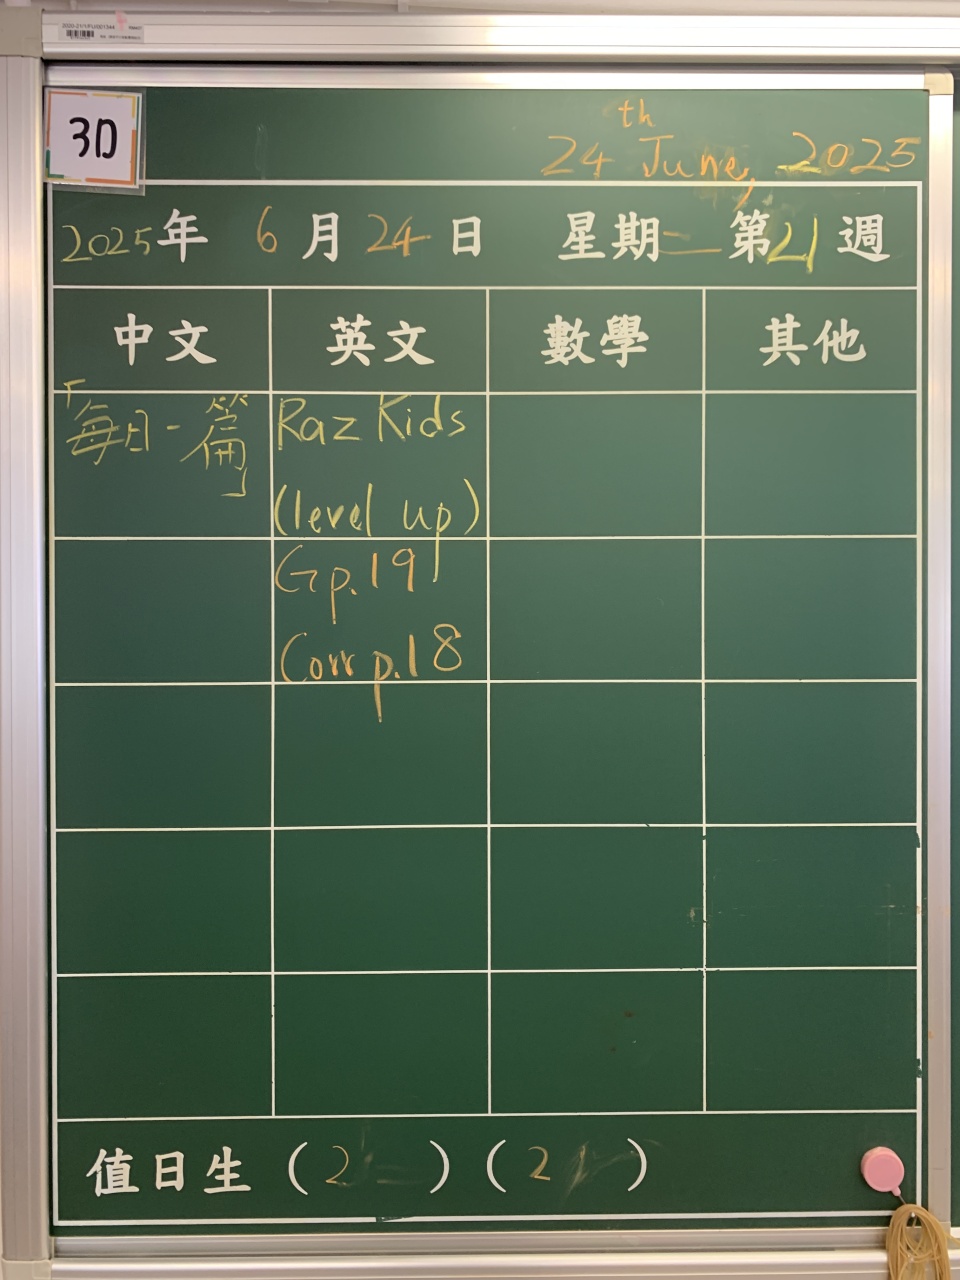 2020-21/1/FU/001344
3D
24th June, 2025
2025年 6月24日 星期二 第21週
中文 英文 數學 其他
「每日一篇」 Raz Kids
(level up)
Gp.19
Corr p.18
值日生 (2 ) (2 )